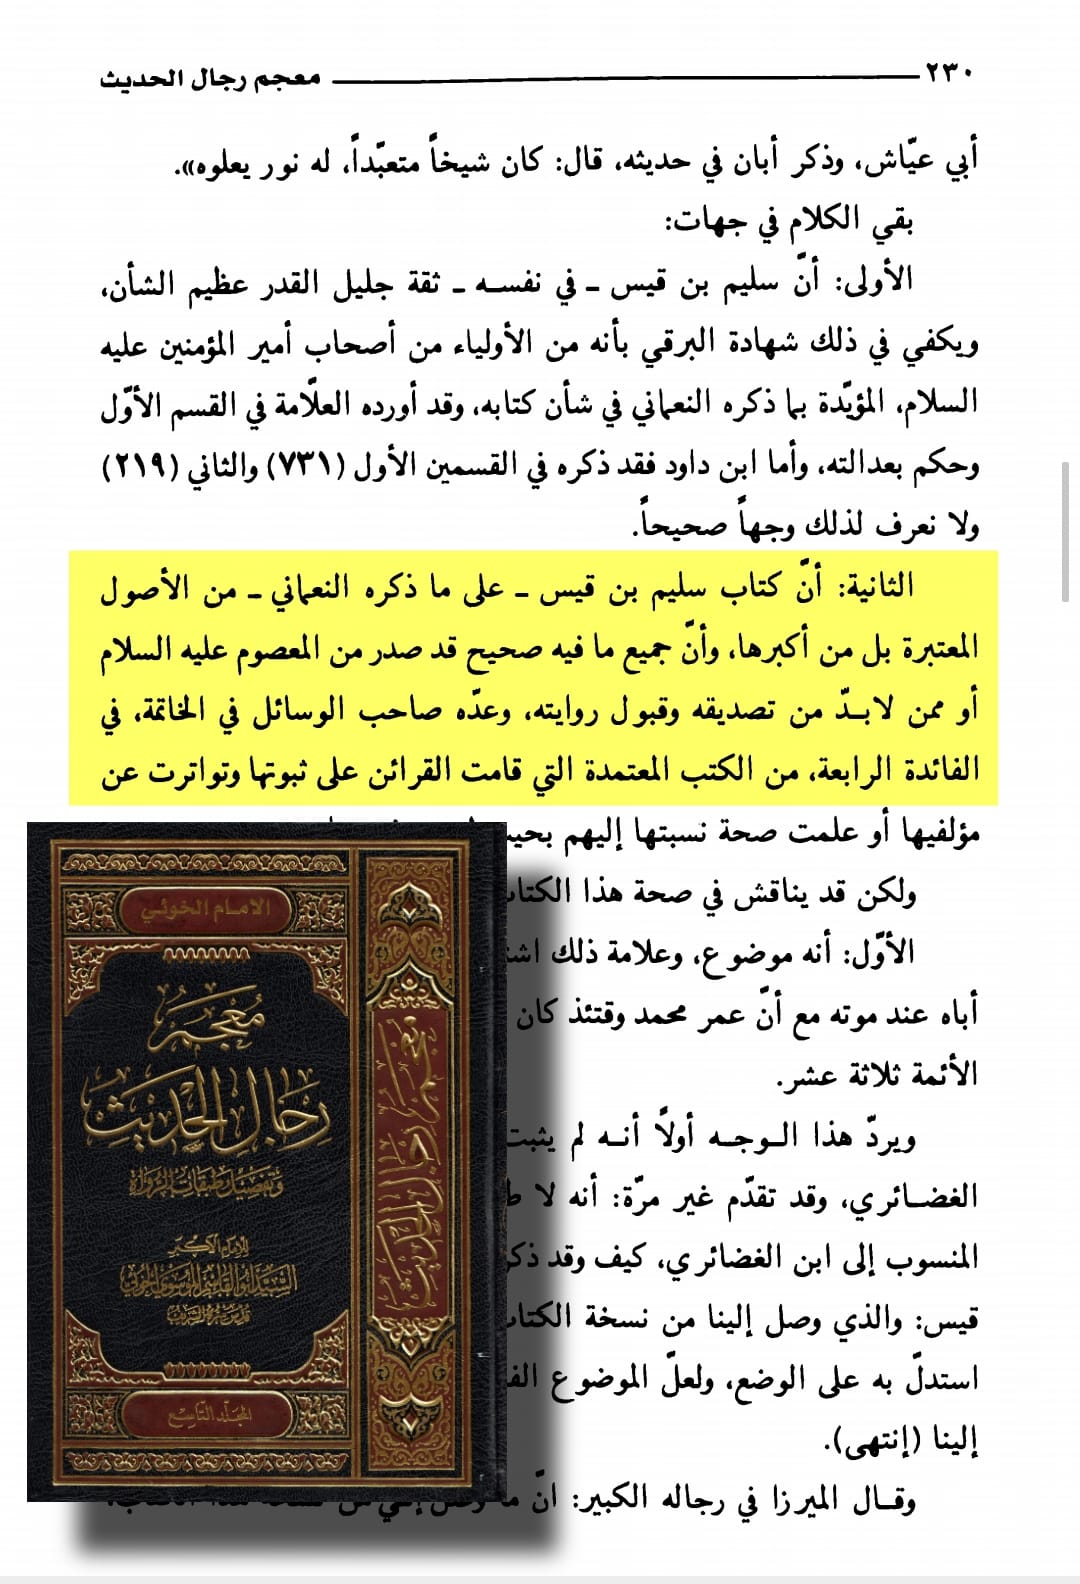 ٢٣٠ معجم رجال الحديث
أبي عيّاش، وذكر أبان في حديثه، قال: كان شيخاً متعبّداً، له نور يعلوه».
بقي الكلام في جهات:
الأولى: أنّ سليم بن قيس ـ في نفسـه ـ ثقة جليل القدر عظيم الشأن،
ويكفي في ذلك شهادة البرقي بأنه من الأولياء من أصحاب أمير المؤمنين عليه
السلام، المؤيّدة بما ذكره النعماني في شأن كتابه، وقد أورده العلّامة في القسم الأوّل
وحكم بعدالته، وأما ابن داود فقد ذكره في القسمين الأول (٧٣١) والثاني (٢١٩)
ولا نعرف لذلك وجهاً صحيحاً.
الثانية: أنّ كتاب سليم بن قيس ـ على ما ذكره النعماني ـ من الأصول
المعتبرة بل من أكبرها، وأنّ جميع ما فيه صحيح قد صدر من المعصوم عليه السلام
أو ممن لابـدّ من تصديقه وقبول روايته، وعدّه صاحب الوسائل في الخاتمة، في
الفائدة الرابعة، من الكتب المعتمدة التي قامت القرائن على ثبوتها وتواترت عن
مؤلفيها أو علمت صحة نسبتها إليهم
ولكن قد يناقش في صحة هذا
الأوّل: أنه موضوع، وعلامة ذلك
أباه عند موته مع أنّ عمر محمد وقتئذ كان
الأئمة ثلاثة عشر.
ويردّ هذا الـوجـه أولاً أنـه لم
الغضـائري، وقد تقدّم غير مرّة: أنه لا
المنسوب إلى ابن الغضائري، كيف وقد
قيس: والذي وصل إلينا من نسخة
استدلّ به على الوضع، ولعلّ الموضوع
إلينا (إنتهى).
وقـال الميرزا في رجاله الكبير: انّ ما
الامام الخوئي
معجم
رجال الحديث
وتفصيل طبقات الرواة
للإمام الأكبر
السيد أبو القاسم الموسوي الخوئي
قدس سره الشريف
المجلد التاسع
معجم رجال الحديث